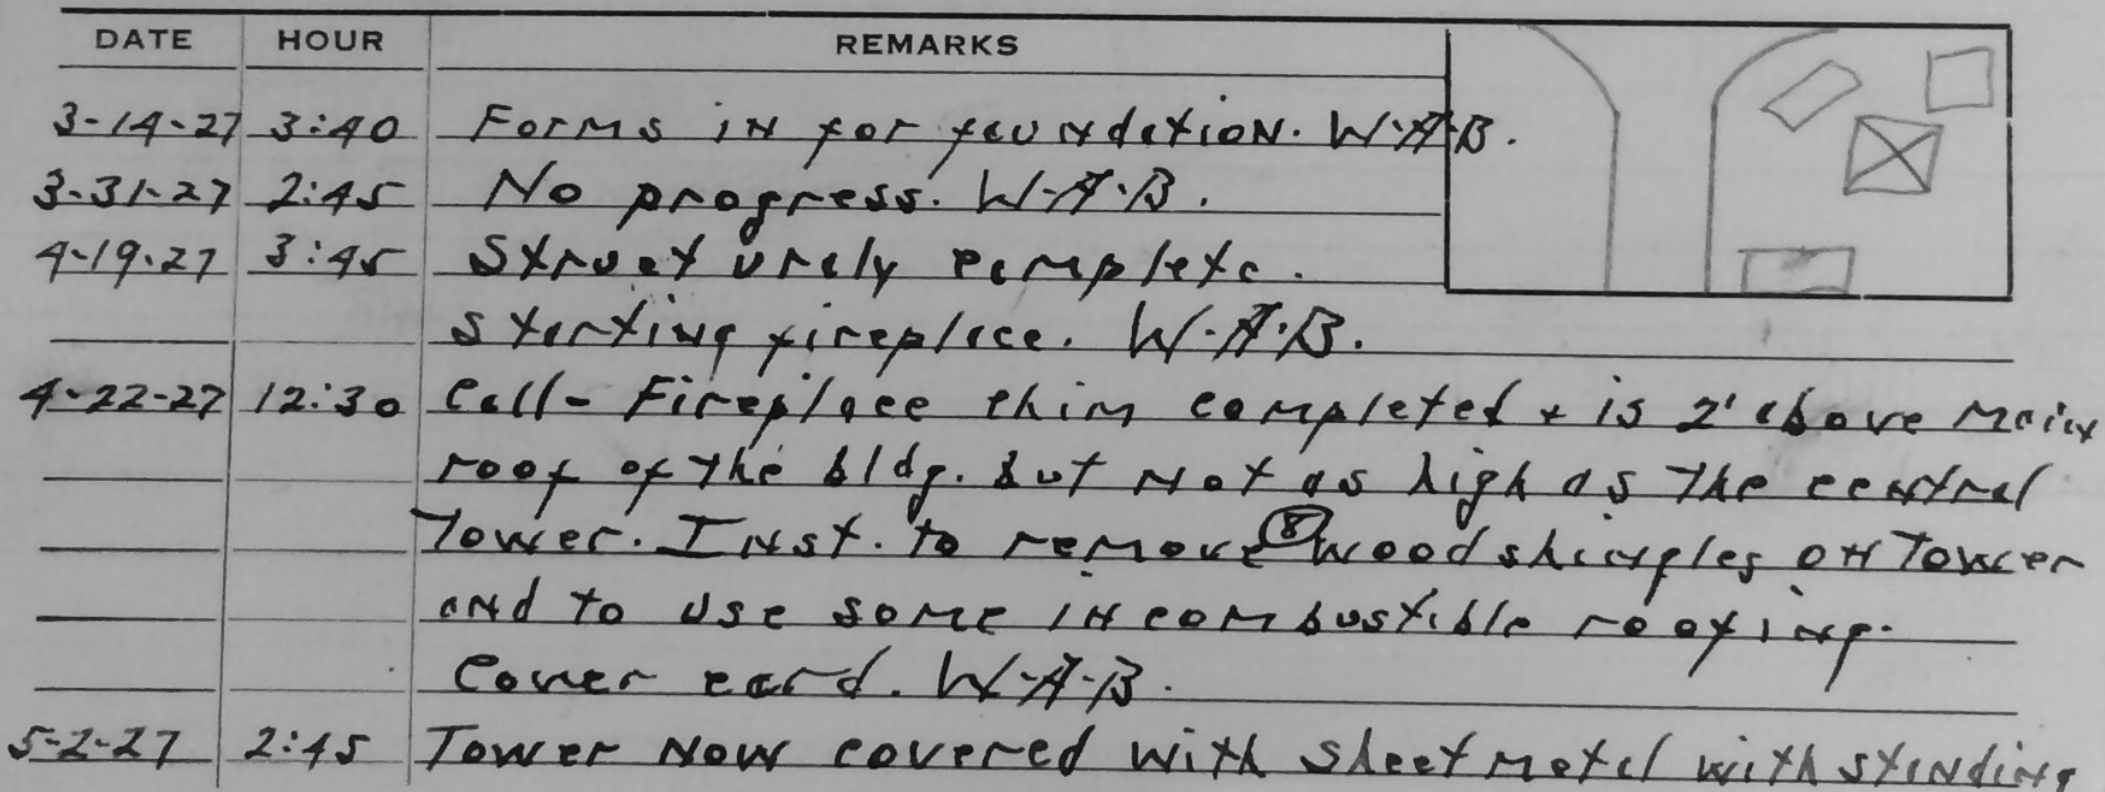 DATE HOUR REMARKS
3-14-27 3:40 Forms in for foundation. W.A.B.
3-31-27 2:45 No progress. W.A.B.
4-19-27 3:45 Structurely complete.
starting fireplace. W.A.B.
4-22-27 12:30 Call- Fireplace chim completed + is 2' above main
roof of the bldg. but not as high as the central
Tower. Inst. to remove (8) wood shingles on Tower
and to use some incombustible roofing.
Cover card. W.A.B.
5-2-27 2:45 Tower now covered with sheet metal with standing